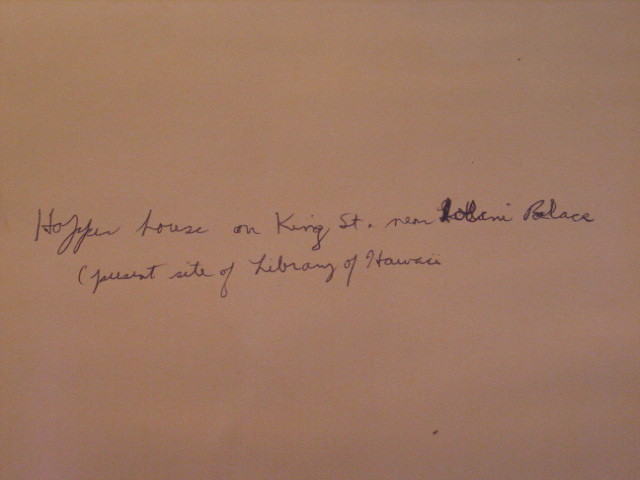 Hopper house on King St. near Iolani Palace
(present site of Library of Hawaii